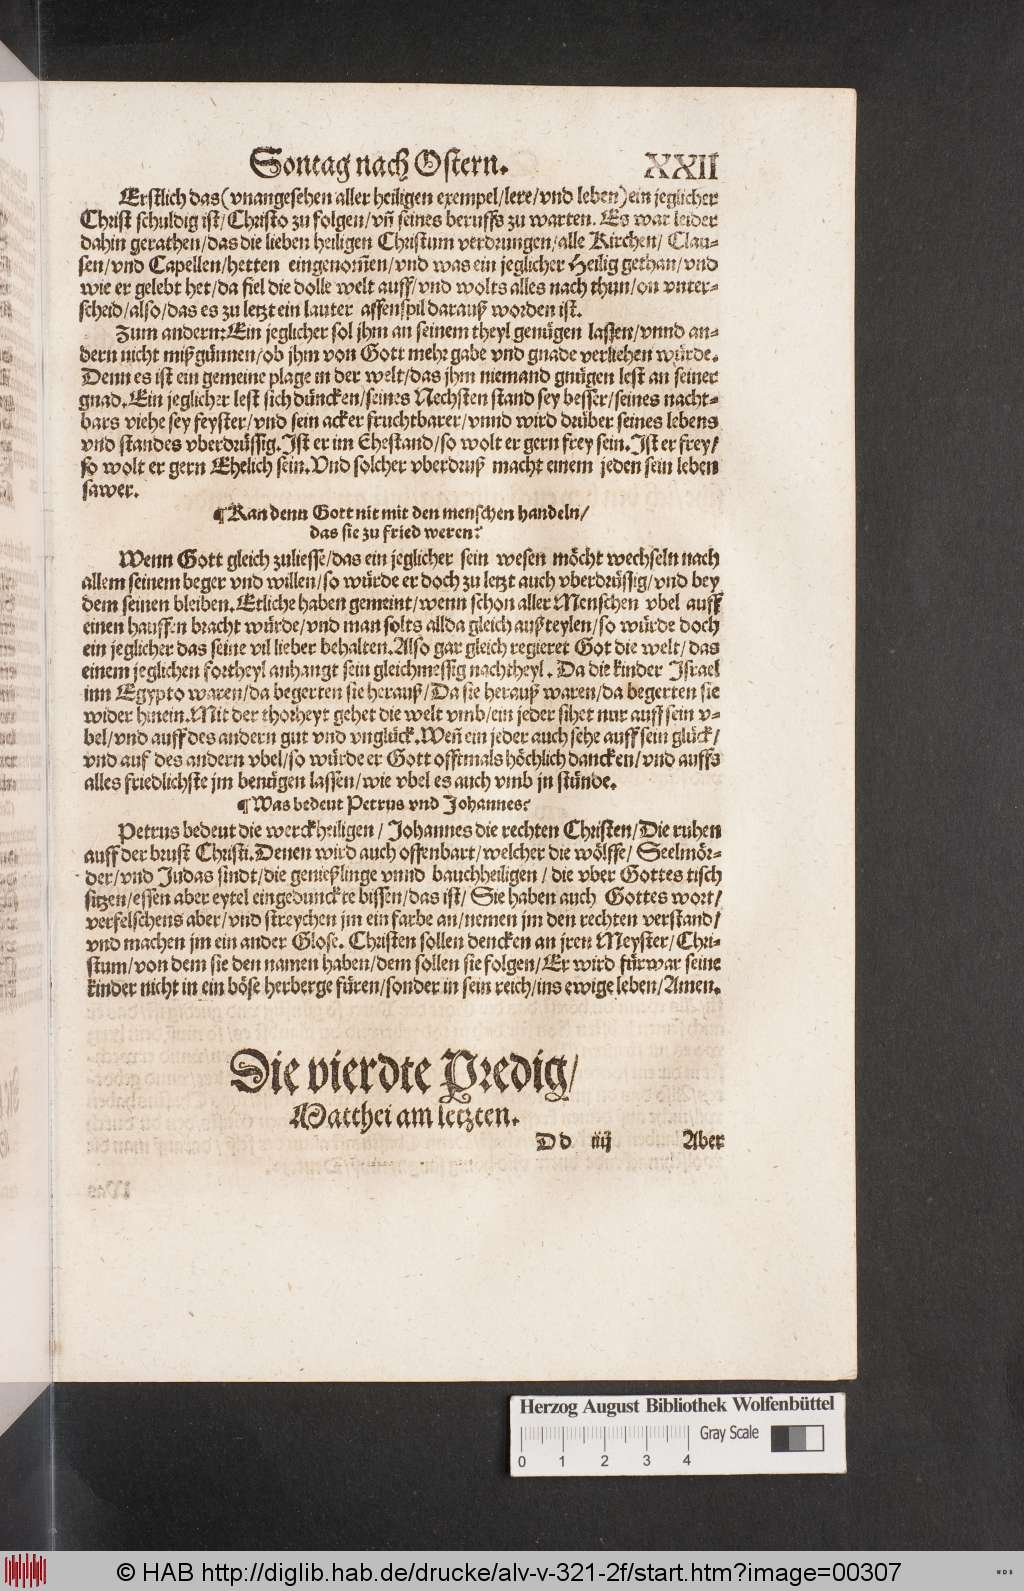 Sontag nach Ostern. XXII
Erstlich das (vnangesehen aller heiligen exempel/lere/vnd leben) ein jeglicher
Christ schuldig ist/Christo zu folgen/vñ seines beruffs zu warten. Es war leider
dahin gerathen/das die lieben heiligen Christum verdrungen/alle Kirchen/ Clau-
sen/vnd Capellen/hetten eingenom̃en/vnd was ein jeglicher Heilig gethan/vnd
wie er gelebt het/da fiel die dolle welt auff/vnd wolts alles nach thun/on vnter-
scheid/also/das es zu letzt ein lauter affenspil darauß worden ist.
Zum andern: Ein jeglicher sol jhm an seinem theyl genügen lassen/vnnd an-
dern nicht mißgünnen/ob jhm von Gott mehr gabe vnd gnade verliehen würde.
Denn es ist ein gemeine plage in der welt/das jhm niemand gnügen lest an seiner
gnad. Ein jeglicher lest sich düncken/seines Nechsten stand sey besser/seines nacht-
bars viehe sey feyster/vnd sein acker fruchtbarer/vnnd wird drüber seines lebens
vnd standes vberdrüssig. Ist er im Ehestand/so wolt er gern frey sein. Ist er frey/
so wolt er gern Ehelich sein. Vnd solcher vberdruß macht einem jeden sein leben
sawer.
¶ Kan denn Gott nit mit den menschen handeln/
das sie zu fried weren?
Wenn Gott gleich zuliesse/das ein jeglicher sein wesen möcht wechseln nach
allem seinem beger vnd willen/so würde er doch zu letzt auch vberdrüssig/vnd bey
dem seinen bleiben. Etliche haben gemeint/wenn schon aller Menschen vbel auff
einen hauffen bracht würde/vnd man solts allda gleich außteylen/so würde doch
ein jeglicher das seine vil lieber behalten. Also gar gleich regieret Got die welt/das
einem jeglichen fortheyl anhangt sein gleichmessig nachtheyl. Da die kinder Israel
inn Egypto waren/da begerten sie herauß/Da sie herauß waren/da begerten sie
wider hinein. Mit der thorheyt gehet die welt vmb/ein jeder sihet nur auff sein v-
bel/vnd auff des andern gut vnd vnglück. Weñ ein jeder auch sehe auff sein glück/
vnd auf des andern vbel/so würde er Gott offtmals höchlich dancken/vnd auffs
alles friedlichste jm benügen lassen/wie vbel es auch vmb jn stünde.
¶ Was bedeut Petrus vnd Johannes?
Petrus bedeut die werckheiligen/ Johannes die rechten Christen/Die ruhen
auff der brust Christi. Denen wird auch offenbart/welcher die wölffe/ Seelmör-
der/vnd Judas sindt/die genießlinge vnnd bauchheiligen/ die vber Gottes tisch
sitzen/essen aber eytel eingedunckte bissen/das ist/ Sie haben auch Gottes wort/
verfelschens aber/vnd streychen jm ein farbe an/nemen jm den rechten verstand/
vnd machen jm ein ander Glose. Christen sollen dencken an jren Meyster/Chri-
stum/von dem sie den namen haben/dem sollen sie folgen/Er wird fürwar seine
kinder nicht in ein böse herberge füren/sonder in sein reich/ins ewige leben/Amen.
Die vierdte Predig/
Matthei am letzten.
D d iiij Aber
Herzog August Bibliothek Wolfenbüttel
Gray Scale
0 1 2 3 4
© HAB http://diglib.hab.de/drucke/alv-v-321-2f/start.htm?image=00307